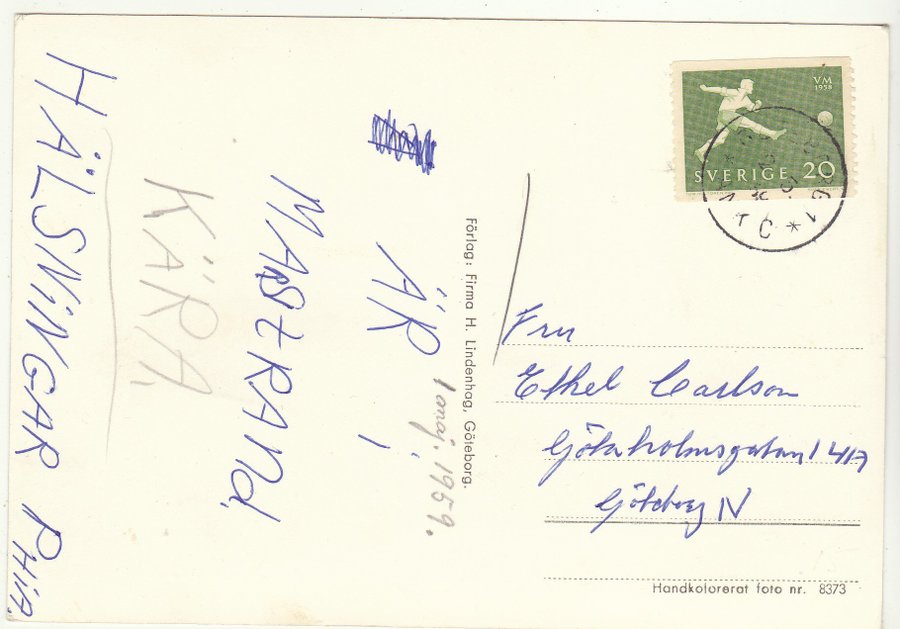 ÄR i
MASTRANd,
KÄRA,
HÄLSNiNGAR PHiA.
1 maj. 1959.
Förlag: Firma H. Lindenhag, Göteborg.
VM
1958
SVERIGE 20
Fru
Ethel Carlson
Götaholmsgatan 1 4/A
Göteborg N
Handkolorerat foto nr. 8373